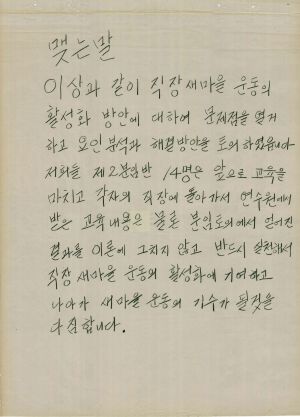 맺는말
이상과 같이 직장새마을 운동의
활성화 방안에 대하여 문제점을 열거
하고 요인분석과 해결방안을 토의 하였읍니다
저희들 제2분임반 14명은 앞으로 교육을
마치고 각자의 직장에 돌아가서 연수원에서
받은 교육내용은 물론 분임토의에서 얻어진
결과를 이론에 그치지 않고 반드시 실천해서
직장 새마을 운동의 활성화에 기여하고
나아가 새마을운동의 기수가 될것을
다짐합니다.